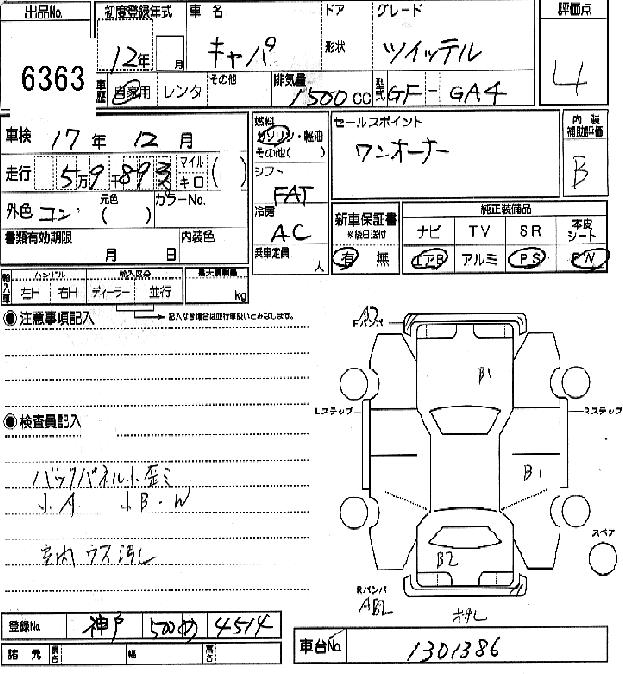 出品No. 初度登録年式 車名 ドア グレード 評価点
6363 12年 月 キャパ 形状 ツイッテル 4
車歴 自家用 レンタ その他 排気量 1500cc 型式 GF-GA4
車検 17年 12月 燃料 ガソリン・軽油 その他( ) セールスポイント 内装補助評価
走行 5万9千893 マイル キロ ( ) シフト FAT ワンオーナー B
外色 コン 元色 ( ) カラーNo. 冷房 AC 新車保証書 ※後日送付 純正装備品
ナビ TV SR 本皮シート
書類有効期限 月 日 内装色 乗車定員 人 有 無 エアB アルミ PS PW
輸入車 ハンドル 輸入区分 最大積載量
左H 右H ディーラー 並行 kg
記入なき場合は並行車扱いとみなします。
注意事項記入
Fバンパ A2
B1
Lステップ Rステップ
検査員記入
バックパネル小歪ミ
小A 小B・W
B1
室内ウス汚し
スペア
B2
Rバンパ
AB2
登録No. 神戸 500め 4514
車台No. 1301386
諸元 長さ 幅 高さ